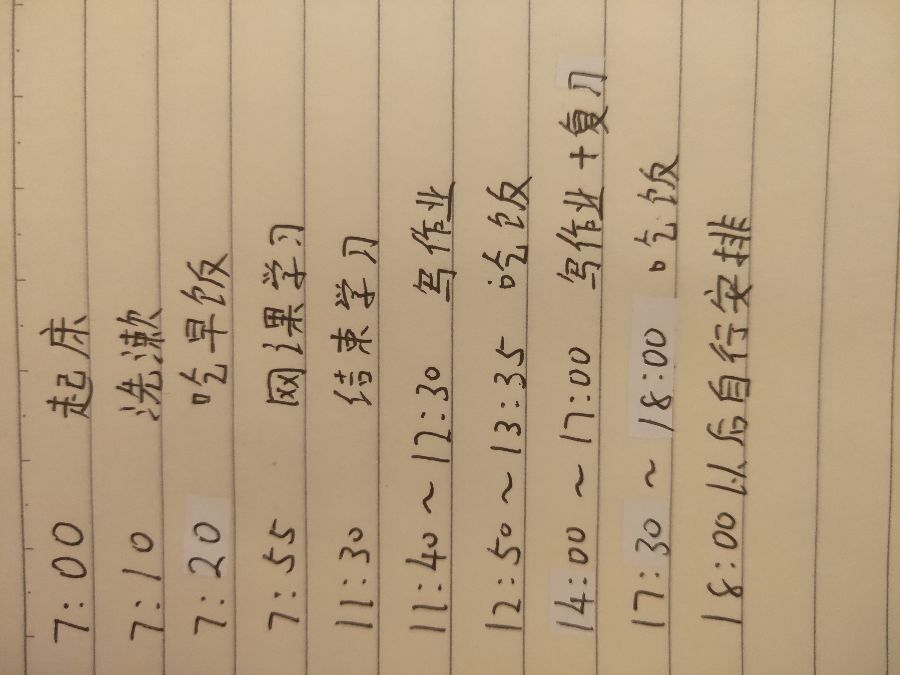 7:00 起床
7:10 洗漱
7:20 吃早饭
7:55 网课学习
11:30 结束学习
11:40～12:30 写作业
12:50～13:35 吃饭
14:00～17:00 写作业+复习
17:30～18:00 吃饭
18:00以后自行安排